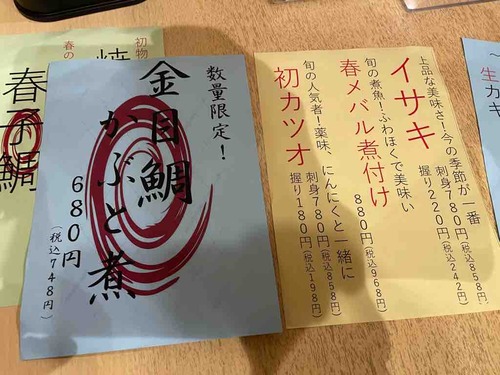 ～
生カキ
イサキ
上品な美味さ！今の季節が一番
刺身780円(税込858円)
握り220円(税込242円)
春メバル煮付け
旬の煮魚！ふわほくで美味い
880円(税込968円)
初カツオ
旬の人気者！薬味、にんにくと一緒に
刺身780円(税込858円)
握り180円(税込198円)
数量限定！
金目鯛
かぶと煮
680円
(税込748円)
初物
春の
焼
春子鯛